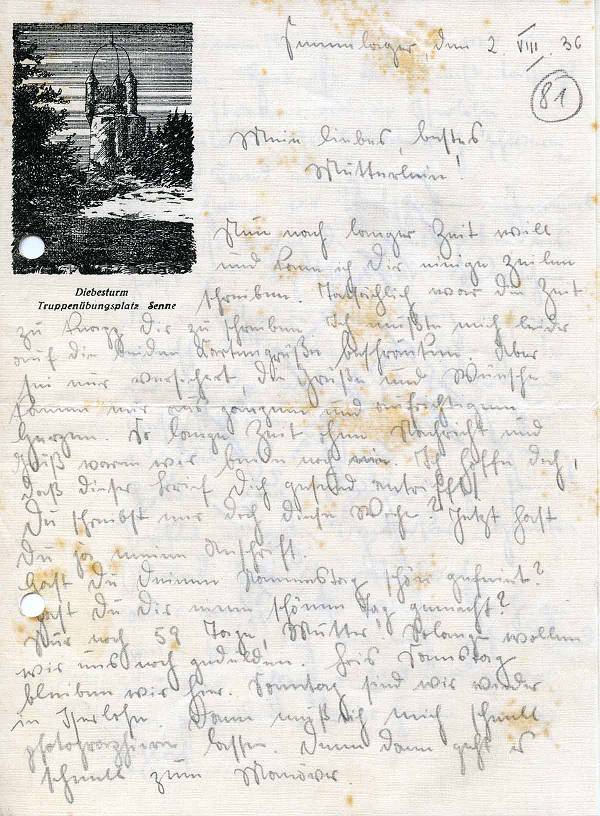 Sennelager, den 2. VIII. 36
81
Mein liebes, bestes
Mütterlein!
Diebesturm
Truppenübungsplatz Senne
Nun nach langer Zeit will
und kann ich Dir einige Zeilen
schreiben. Tatsächlich war die Zeit
zu knapp Dir zu schreiben. Ich mußte mich leider
auf die beiden Kartengrüße beschränken. Aber
sei mir versichert, die Grüße und Wünsche
kamen mir aus ganzem und aufrichtigem
Herzen. So lange Zeit ohne Nachricht und
Gruß waren wir beide noch nie. Ich hoffe doch,
daß dieser Brief Dich gesund antrifft!
Du schreibst mir doch diese Woche? Jetzt hast
Du ja meine Anschrift.
Hast Du Deinen Namenstag schön gefeiert?
Hast Du Dir einen schönen Tag gemacht?
Nur noch 59 Tage, Mutter. Solange wollen
wir uns noch gedulden. Bis Samstag
bleiben wir hier. Sonntag sind wir wieder
in Iserlohn. Dann muß ich mich schnell
photographieren lassen. Denn dann geht es
schnell zum Manöver.